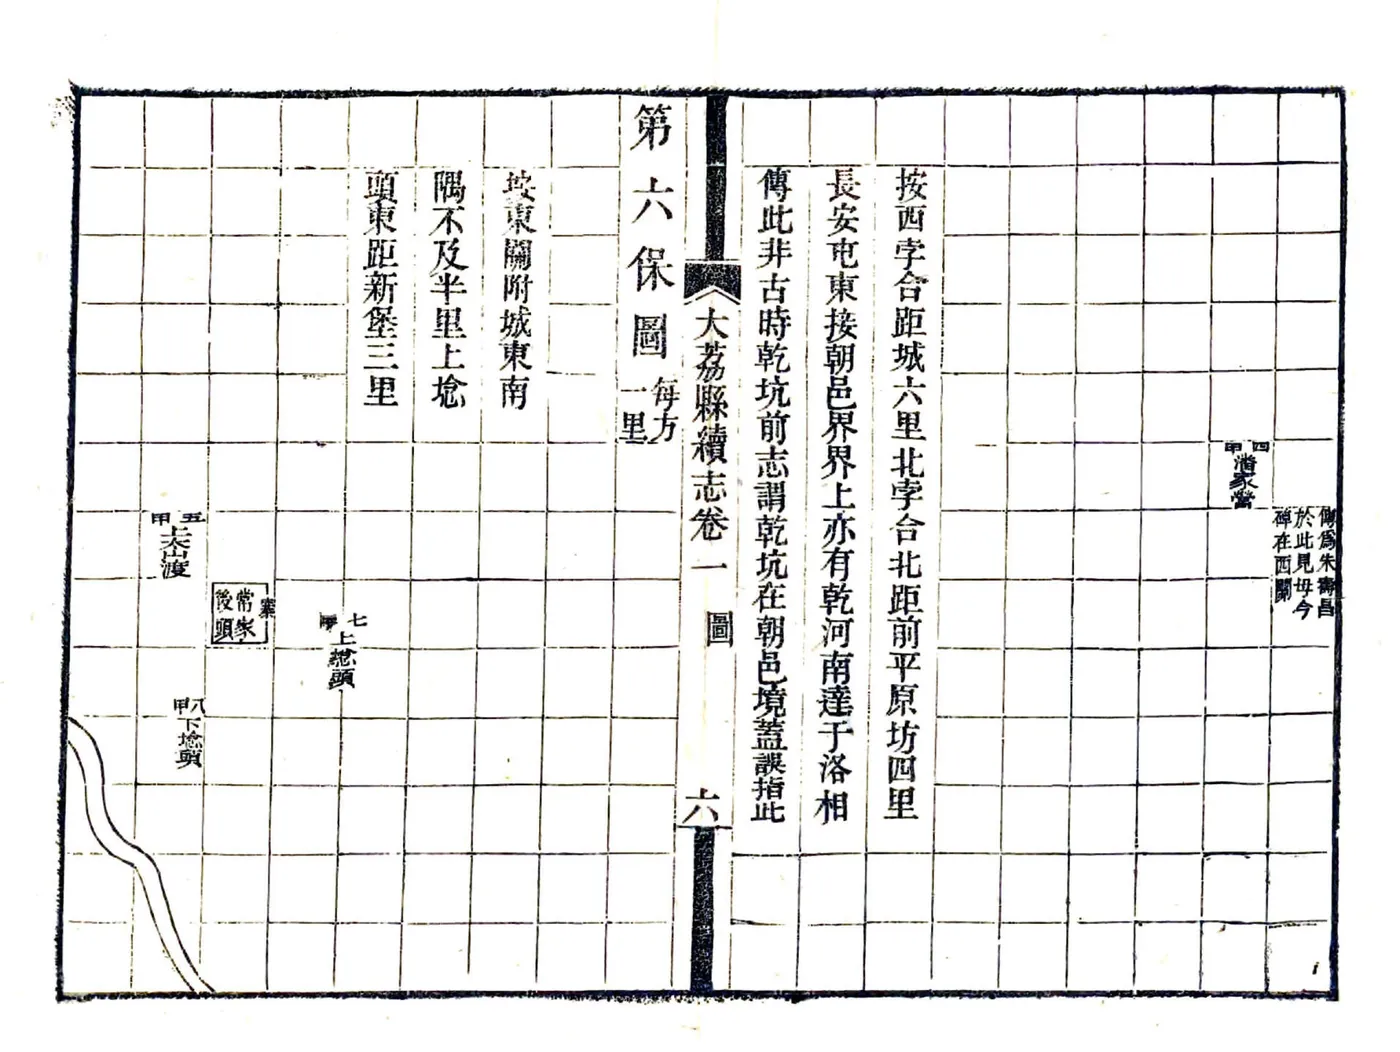 傳為朱壽昌
於此見母今
碑在西關
四甲
潘家營
按西孛合距城六里北孛合北距前平原坊四里
長安屯東接朝邑界界上亦有乾河南達于洛相
傳此非古時乾坑前志謂乾坑在朝邑境蓋誤指此
大荔縣續志卷一
圖
六
第六保圖
每方
一里
按東關附城東南
隅不及半里上埝
頭東距新堡三里
七甲
上埝頭
寨
常家
後頭
五甲
八甲
下埝頭